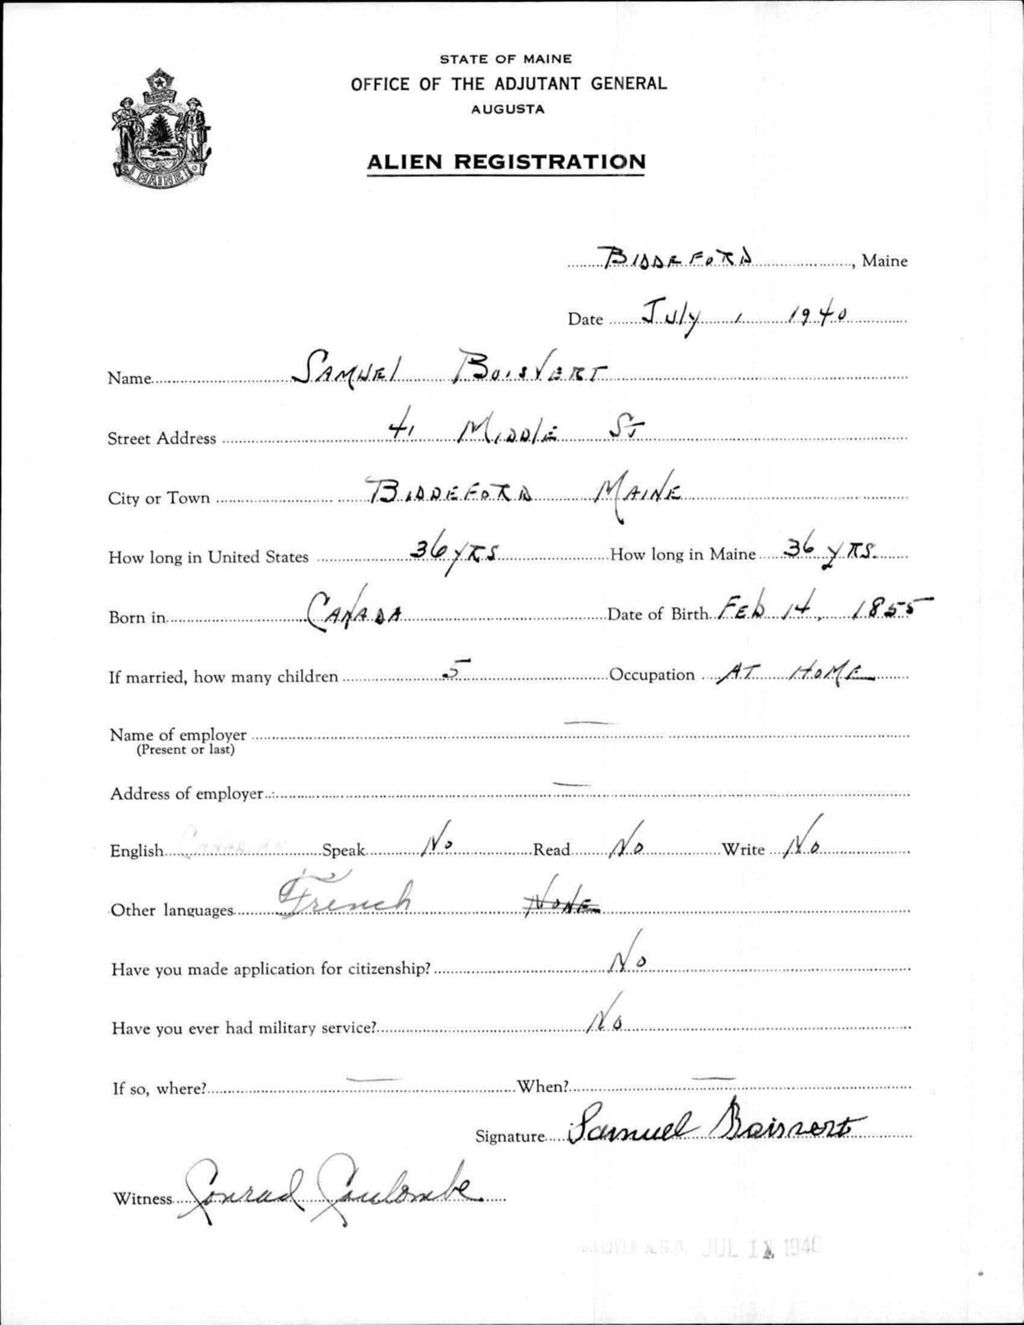 STATE OF MAINE
OFFICE OF THE ADJUTANT GENERAL
AUGUSTA
ALIEN REGISTRATION
MAINE
Biddeford, Maine
Date July 1 1940
Name Samuel Boisvert
Street Address 41 Middle St
City or Town Biddeford Maine
How long in United States 36 yrs How long in Maine 36 yrs.
Born in Canada Date of Birth Feb 14, 1855
If married, how many children 5 Occupation At Home
Name of employer —
(Present or last)
Address of employer —
English Speak No Read No Write No
Other languages French None
Have you made application for citizenship? No
Have you ever had military service? No
If so, where? — When? —
Signature Samuel Boisvert
Witness Conrad Coulombe
A.G.O. JUL 1940